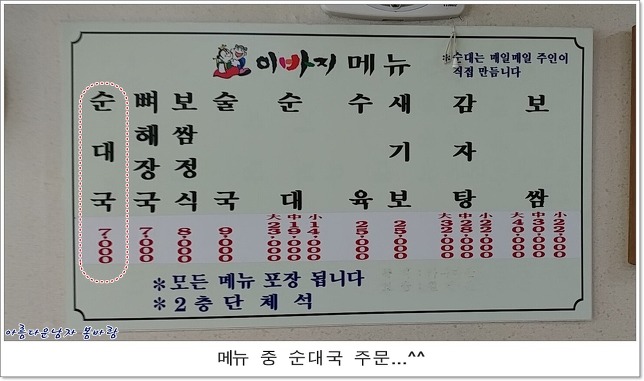 이바지 메뉴
*순대는 매일매일 주인이
직접 만듭니다
순대국 7,000
뼈해장국 7,000
보쌈정식 8,000
술국 9,000
순대 大 23,000 中 19,000 小 14,000
수육 25,000
새기보 25,000
감자탕 大 32,000 中 28,000 小 22,000
보쌈 大 40,000 中 30,000 小 22,000
*모든 메뉴 포장 됩니다
*2층 단 체 석
아름다운남자 봉바람
메뉴 중 순대국 주문...^^